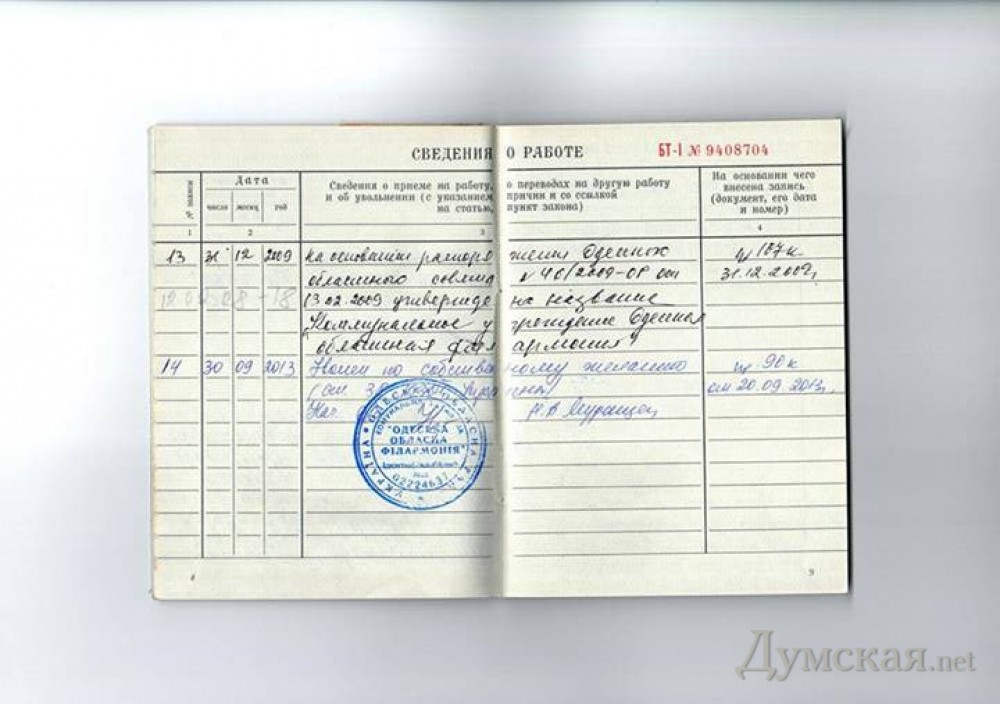 СВЕДЕНИЯ О РАБОТЕ
БТ-I № 9408704
№ записи
Дата
число месяц год
Сведения о приеме на работу, о переводах на другую работу
и об увольнении (с указанием причин и со ссылкой
на статью, пункт закона)
На основании чего
внесена запись
(документ, его дата
и номер)
1 2 3 4
13 31 12 2009 На основании распоряжения Одесского
областного совета № 46/2009-ОР от
13.02.2009 утверждено название
"Коммунальное учреждение Одесская
областная филармония"
пр 167к
31.12.2009г
14 30 09 2013 Уволен по собственному желанию
(ст. 38
Нач
пр. 90к
от 20.09.2013г.
УКРАЇНА ОДЕСЬКА ОБЛАСНА РАДА
"ОДЕСЬКА
ОБЛАСНА
ФІЛАРМОНІЯ"
02224637
8
9
Думская.net